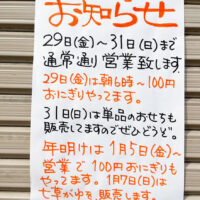 お知らせ
29日(金)~31日(日)まで
通常通り営業致します。
29日(金)は朝6時~100円
おにぎりやってます。
31日(日)は単品のおせちも
販売してますのでぜひどうぞ。
年明けは1月5日(金)~
営業で100円おにぎりも
やってます。1月7日(日)は
七草がゆを販売します。